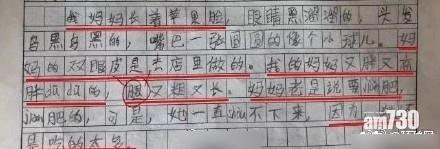 我妈妈长着苹果脸,眼睛黑溜溜的,头发
乌黑乌黑的,嘴巴一张圆圆的像个小球儿。妈
妈的双眼皮是去店里做的。我的妈妈又胖又高
胖瓜瓜的,腿又粗又长。妈妈老是说要减肥,
减肥的,可是,她一直减不下来,因为
是吃的太多
am730